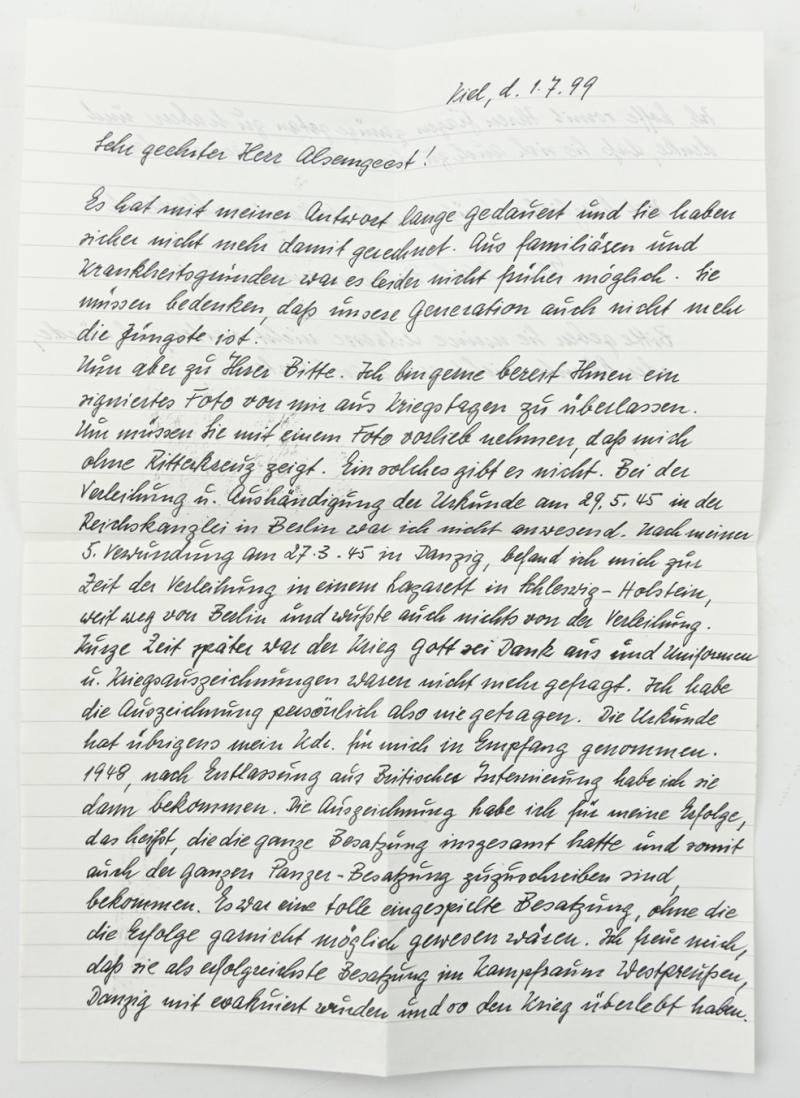 Kiel, d. 1.7.99
Sehr geehrter Herr Alsemgeest!
Es hat mit meiner Antwort lange gedauert und Sie haben
sicher nicht mehr damit gerechnet. Aus familiären und
Krankheitsgründen war es leider nicht früher möglich. Sie
müssen bedenken, daß unsere Generation auch nicht mehr
die Jüngste ist.
Nun aber zu Ihrer Bitte. Ich bin gerne bereit Ihnen ein
signiertes Foto von mir aus Kriegstagen zu überlassen.
Nur müssen Sie mit einem Foto vorlieb nehmen, daß mich
ohne Ritterkreuz zeigt. Ein solches gibt es nicht. Bei der
Verleihung u. Aushändigung der Urkunde am 29.5.45 in der
Reichskanzlei in Berlin war ich nicht anwesend. Nach meiner
5. Verwundung am 27.3.45 in Danzig, befand ich mich zur
Zeit der Verleihung in einem Lazarett in Schleswig-Holstein,
weit weg von Berlin und wußte auch nichts von der Verleihung.
Kurze Zeit später war der Krieg Gott sei Dank aus und Uniformen
u. Kriegsauszeichnungen waren nicht mehr gefragt. Ich habe
die Auszeichnung persönlich also nie getragen. Die Urkunde
hat übrigens mein Kdr. für mich in Empfang genommen.
1948, nach Entlassung aus Britischer Internierung habe ich sie
dann bekommen. Die Auszeichnung habe ich für meine Erfolge,
das heißt, die die ganze Besatzung insgesamt hatte und somit
auch der ganzen Panzer-Besatzung zuzuschreiben sind,
bekommen. Es war eine tolle eingespielte Besatzung, ohne die
die Erfolge garnicht möglich gewesen wären. Ich freue mich,
daß sie als erfolgreichste Besatzung im Kampfraum Westpreußen,
Danzig mit evakuiert wurden und so den Krieg überlebt haben.